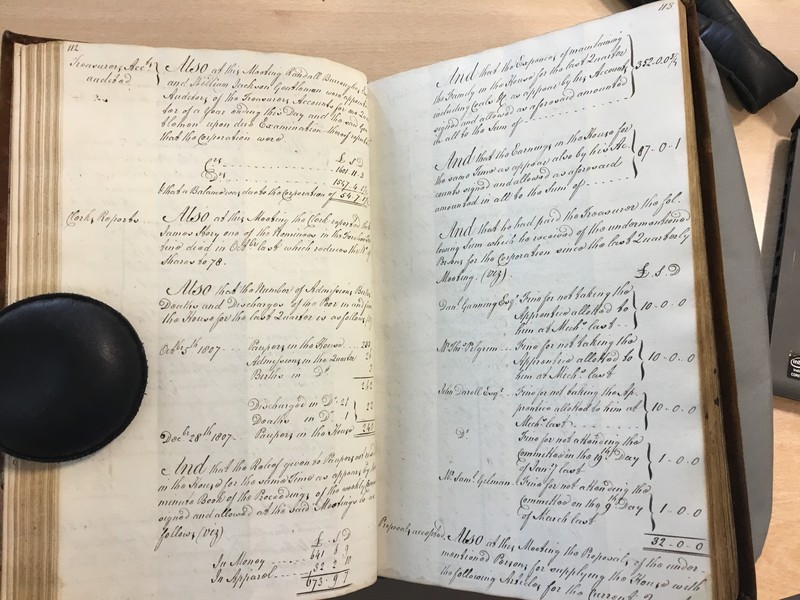 112
Treasurers Acc.ts audited
Also at this Meeting Randall Burroughes
and William Jackson Gentlemen were appoint
Auditors of the Treasurers Accounts for one Quar
ter of a Year ending this Day and the said Gen
tlemen upon due Examination thereof reported
that the Corporation were
£ S D
Crs 1601 11 3
Drs 1547 4
& that a Balance was due to the Corporation of 54 7
Clerks Reports
Also at this Meeting the Clerk reported that
James Story one of the Nominees in the
died in Octr last which reduces the No. of
Shares to 78.
Also that the Number of Admissions Births
Deaths and Discharges of the Poor in and
the House for the last Quarter is as follows
Octbr 5th 1807 Paupers in the House
Admissions in the Quarter
Births in Do
262
Discharged in Do 21
Deaths in Do 1 } 22
Decbr 28th 1807 Paupers in the House 240
And that the Relief given to Paupers not
in the House for the same Time as appears by the
minute Book of the Proceedings of the weekly
signed and allowed at the said Meetings is as
follows (viz)
£ S D
In Money 641 6 9
In Apparel 32 2 10
673 9 7
113
And that the Expences of maintaining
the Family in the House for the last Quarter
including Coals &c as appear by his Accounts
signed and allowed as aforesaid amounted
in all to the Sum of } 352.0.0¾
And that the Earnings in the House for
the same Time as appear also by his Ac-
counts signed and allowed as aforesaid
amounted in all to the Sum of } 87-0-1
And that he had paid the Treasurer the fol-
lowing Sum which he received of the undermentioned
Persons for the Corporation since the last Quarterly
Meeting. (viz)
£ S D
Danl Ganning Esqr Fine for not taking the
Apprentice allotted to
him at Michs last } 10-0-0
Mr Thos Pilgrim Fine for not taking the
Apprentice allotted to
him at Michs last } 10-0-0
John Daroll Esqr Fine for not taking the Ap-
prentice allotted to him at
Michs last } 10-0-0
Do Fine for not attending the
Committee on the 19th Day
of Jany last } 1-0-0
Mr Saml Gilman Fine for not attending the
Committee on the 9th Day
of March last } 1-0-0
32-0-0
Proposals accepted
Also at this Meeting the Proposals of the under-
mentioned Persons for supplying the House with
the following Articles for the Current